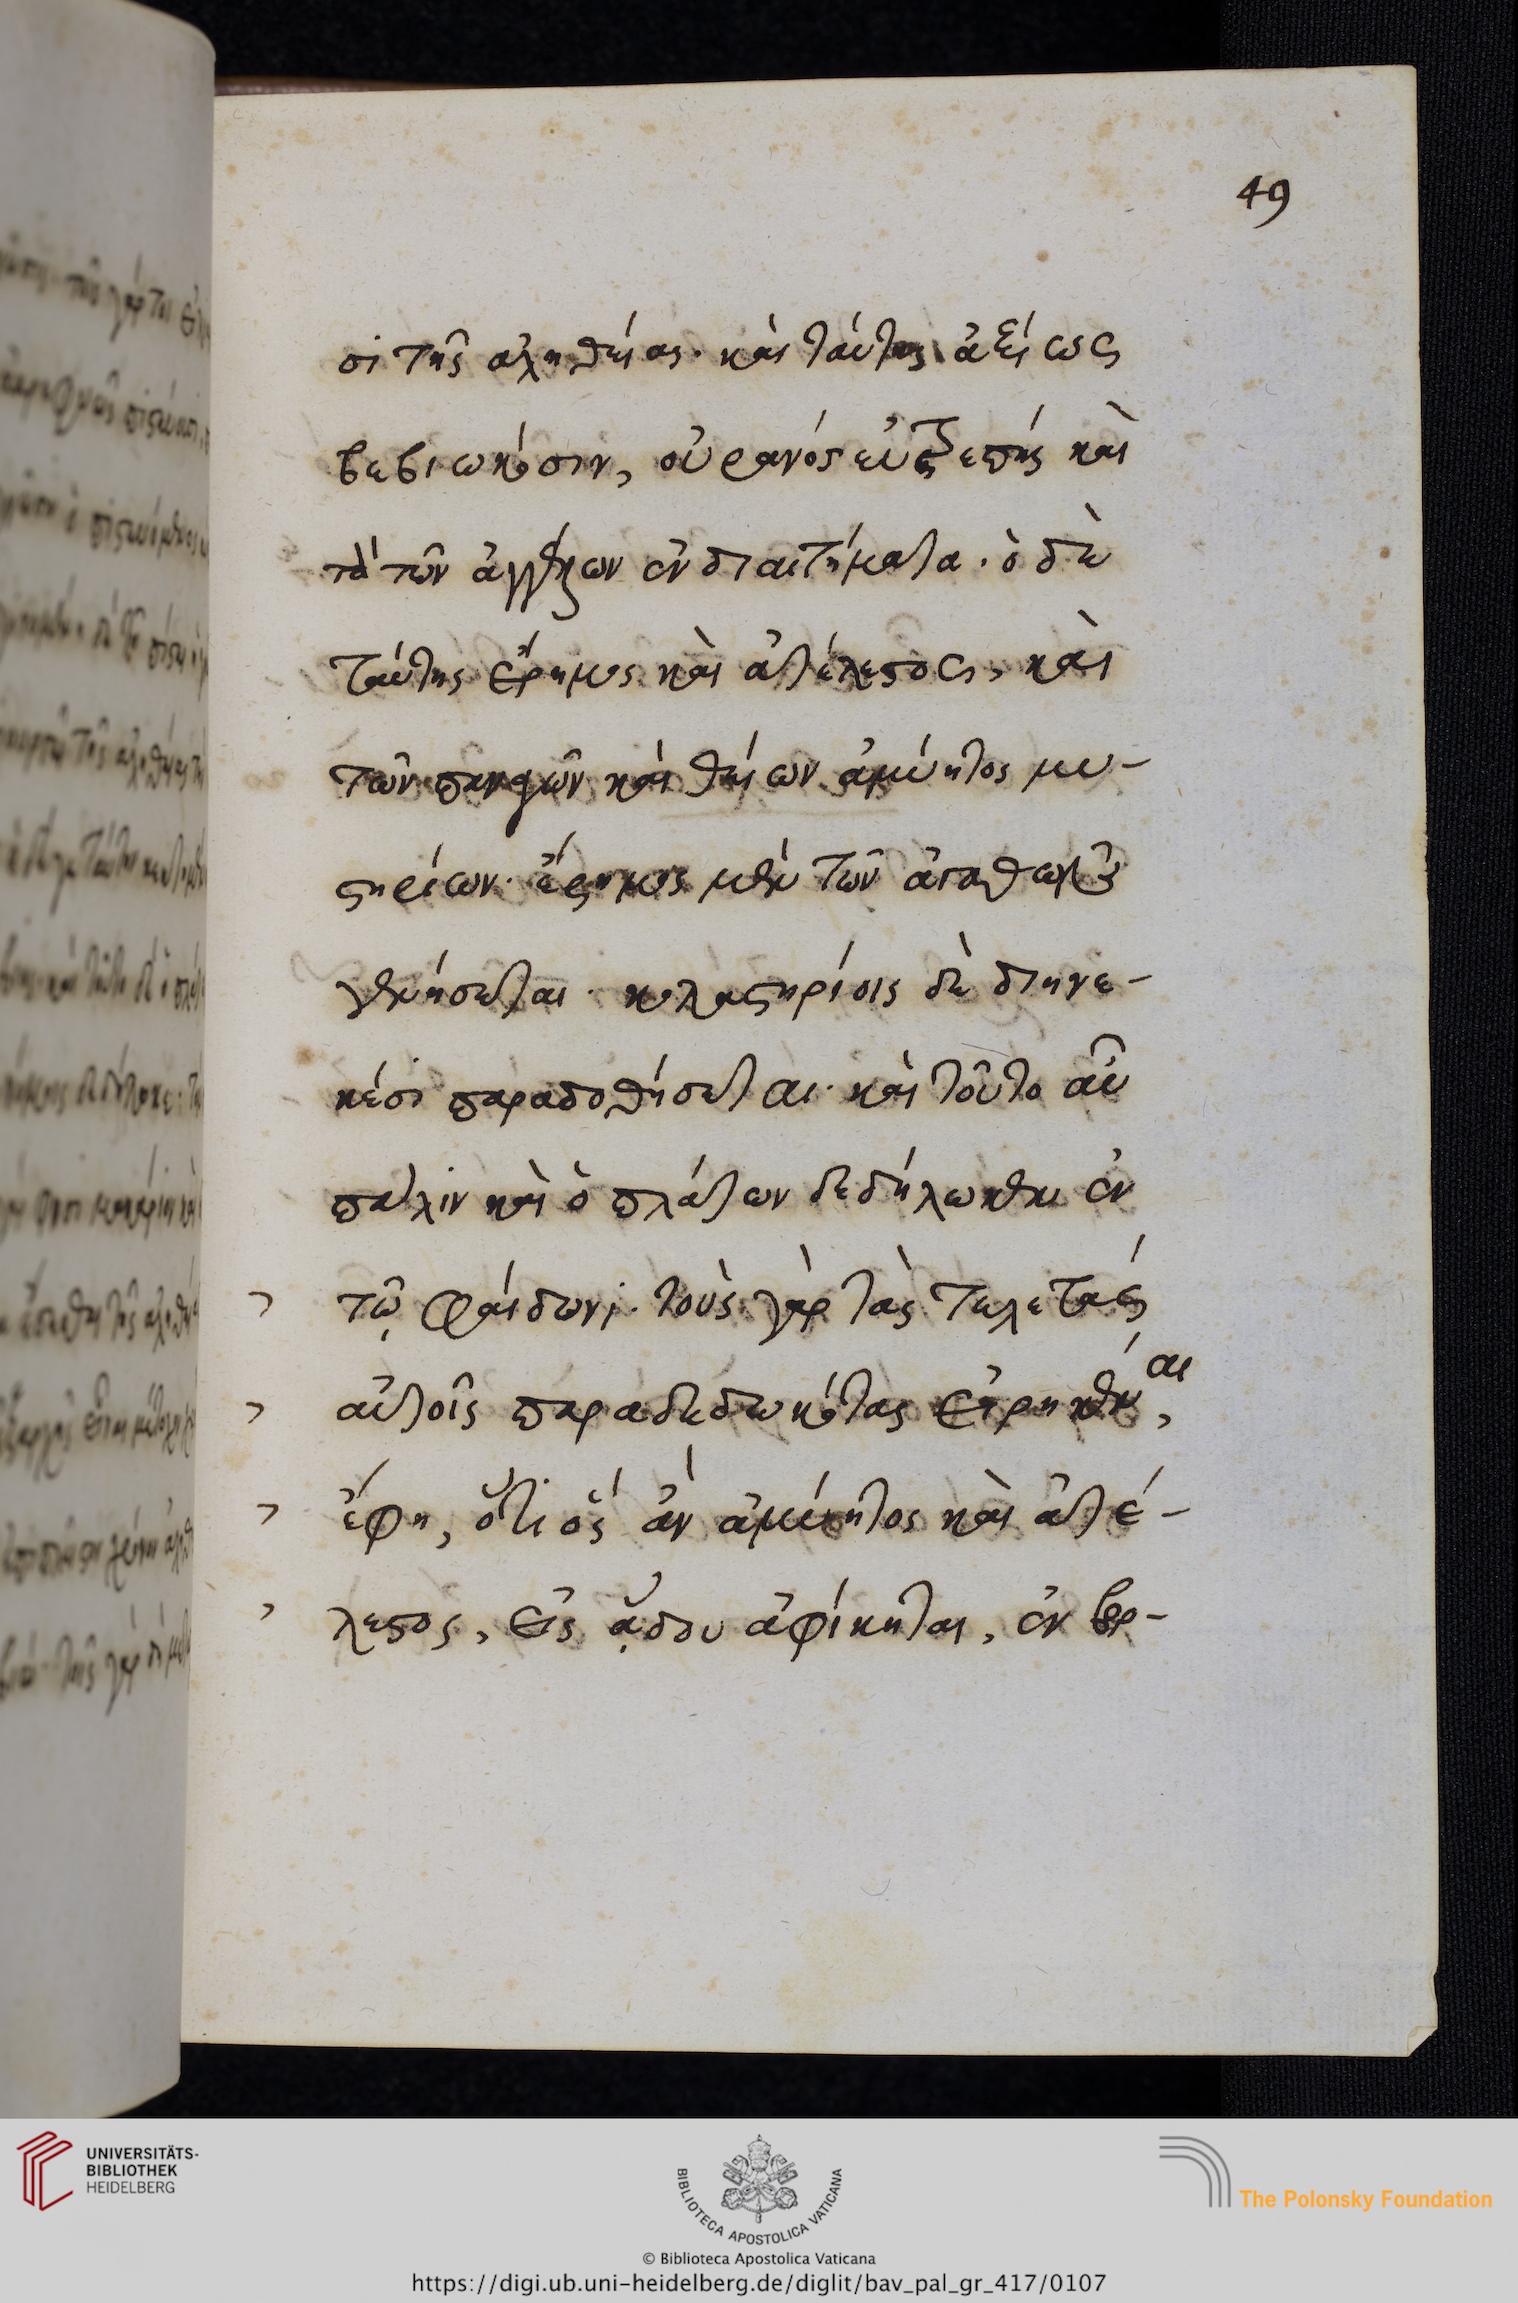 49
σι τῆς ἀληθείας. καὶ ταύτης ἀξίως
βεβιωκόσιν, οὐρανὸς εὐτρεπὴς καὶ
τὰ τῶν ἀγγέλων ἐνδιαιτήματα. ὁ δὲ
ταύτης ἔρημος καὶ ἀτέλεστος, καὶ
τῶν σεπτῶν καὶ θείων ἀμύητος μυ-
στηρίων. ἔρημος μὲν τῶν ἀγαθῶν
γενήσεται. κολαστηρίοις δὲ διηνε-
κέσι παραδοθήσεται. καὶ τοῦτο αὖ
πάλιν καὶ ὁ πλάτων δεδήλωκεν ἐν
τῷ φαίδωνι. τοὺς γὰρ τὰς τελετάς
αὐτοῖς παραδεδωκότας εἰρηκέναι,
ἔφη, ὅτι ὃς ἂν ἀμύητος καὶ ἀτέ-
λεστος, εἰς ᾅδου ἀφίκηται, ἐν βορ-
UNIVERSITÄTS-
BIBLIOTHEK
HEIDELBERG
BIBLIOTECA APOSTOLICA VATICANA
The Polonsky Foundation
© Biblioteca Apostolica Vaticana
https://digi.ub.uni-heidelberg.de/diglit/bav_pal_gr_417/0107